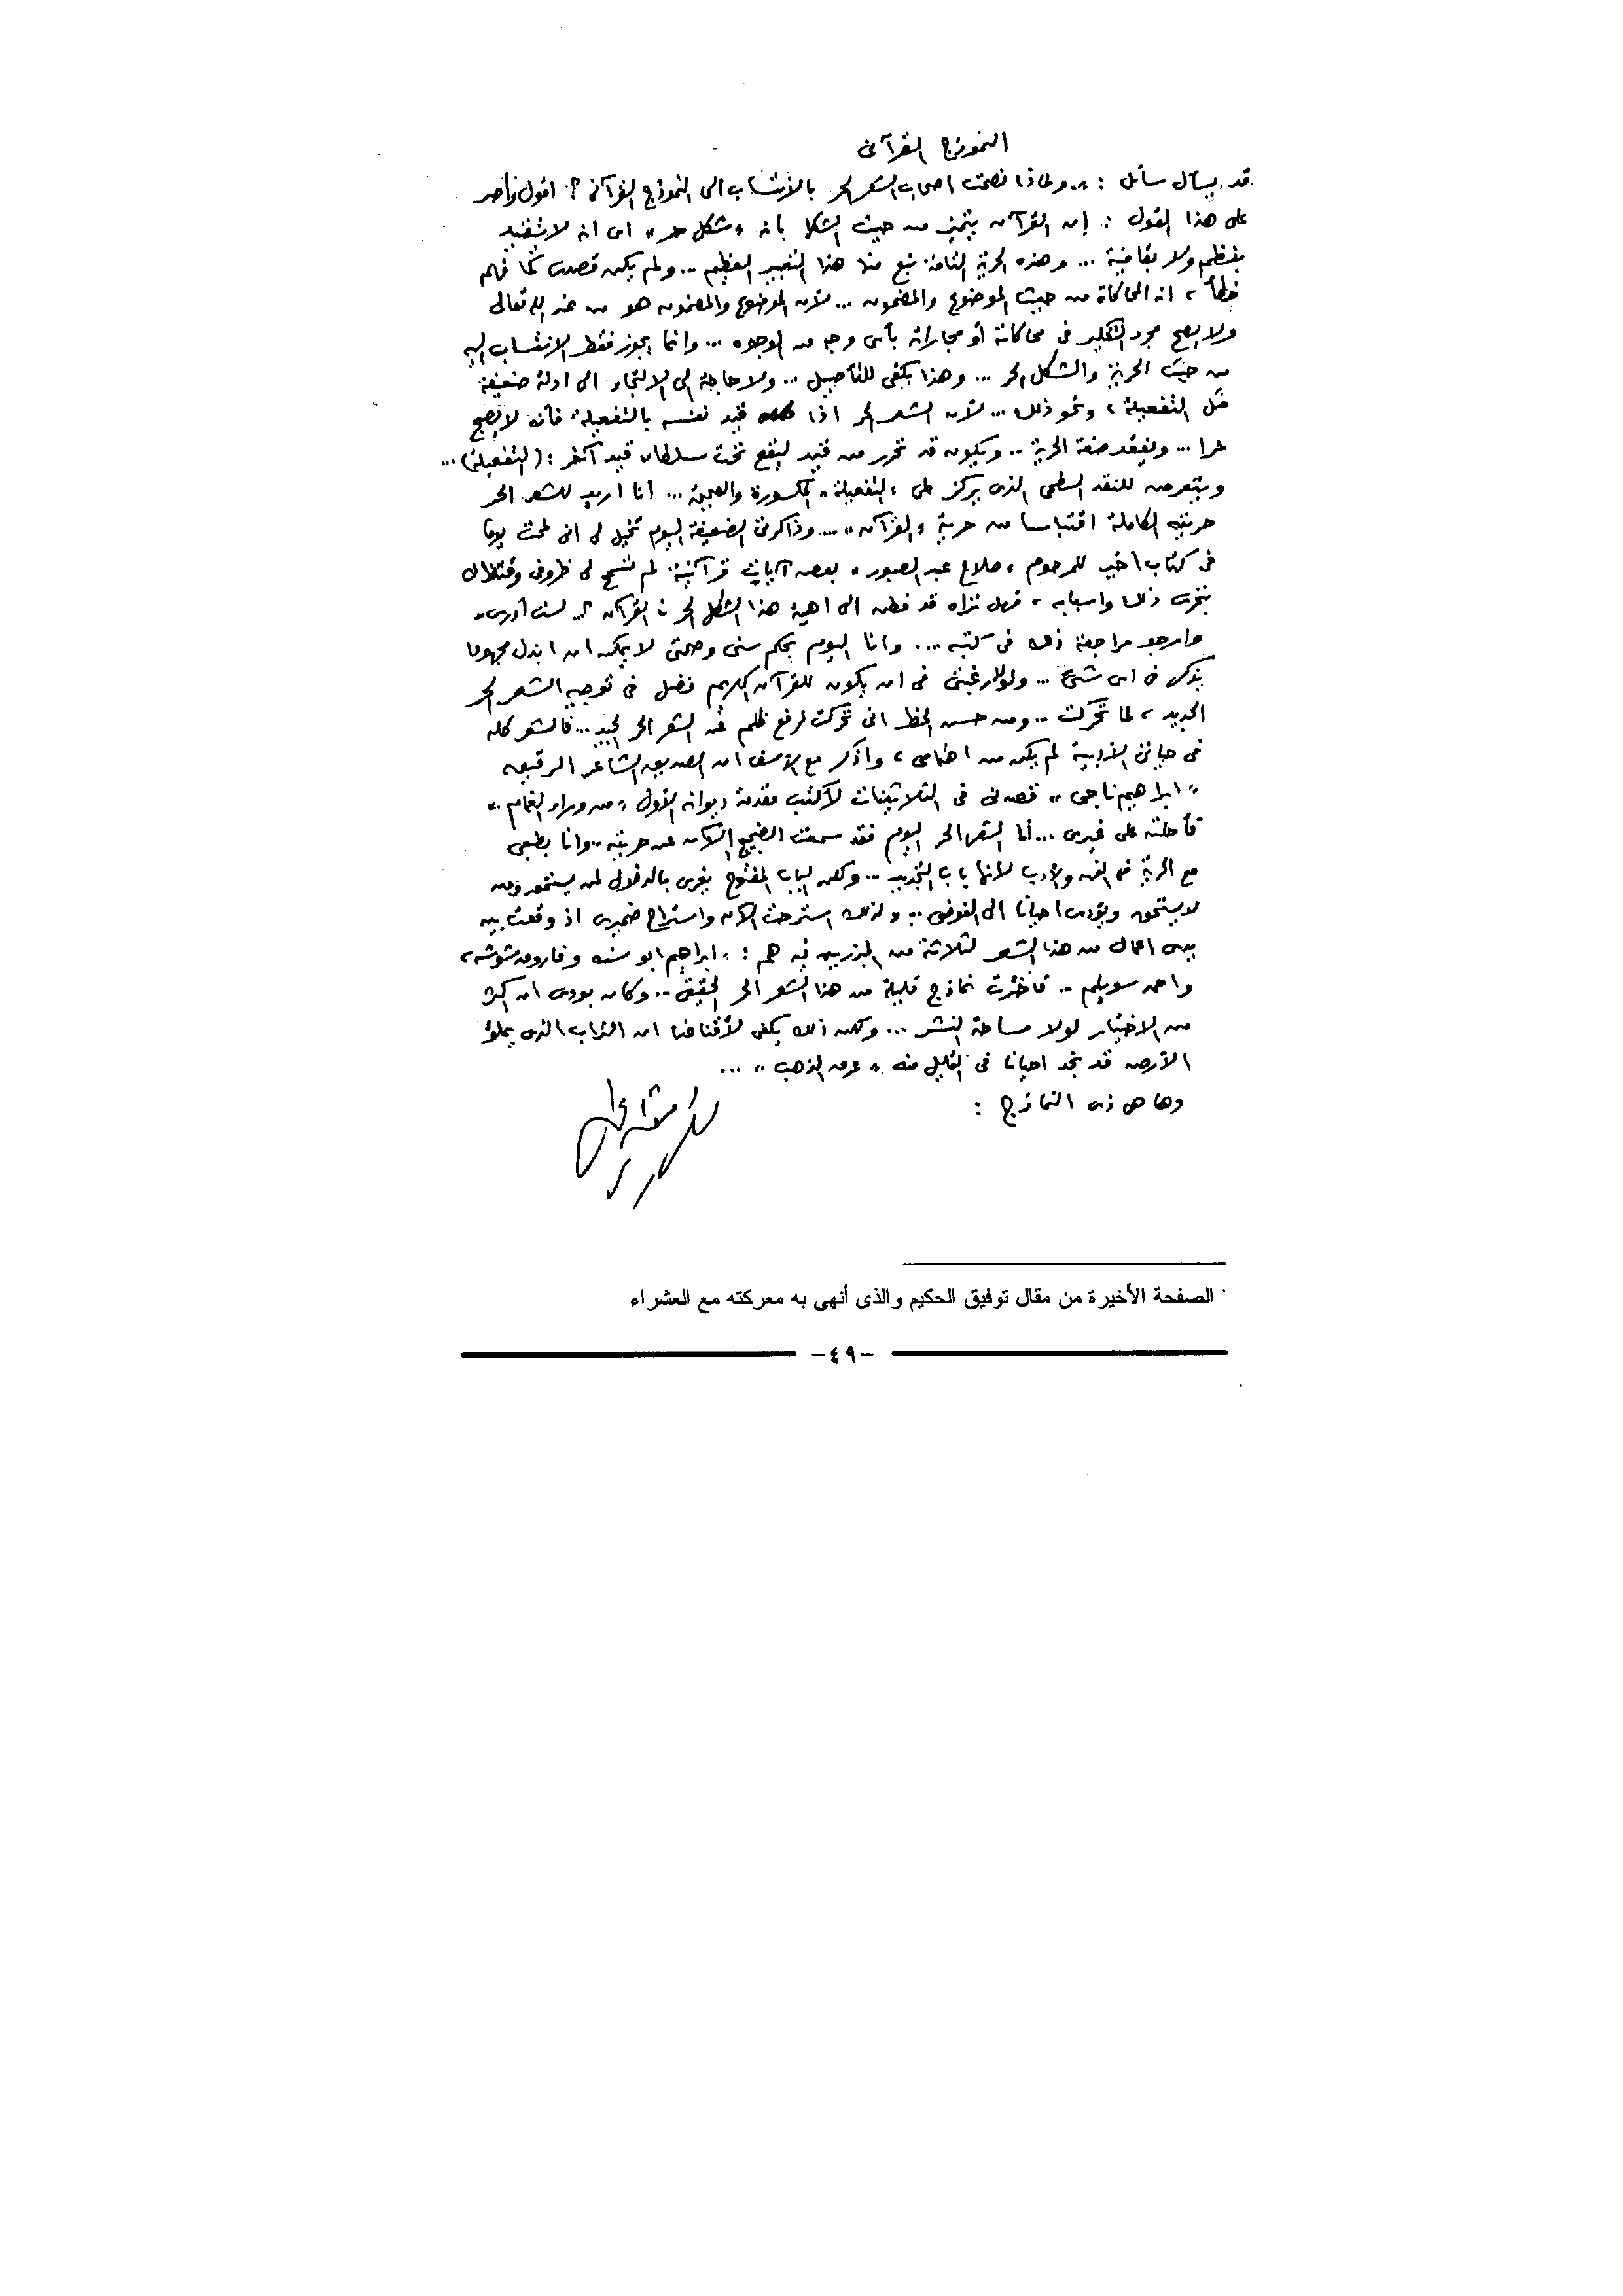 النموذج القرآنى
قد يسأل سائل : .. ولماذا نصحت اصحاب الشعر الحر بالانتساب الى النموذج القرآنى ؟ اقول وأصر
على هذا القول : إن القرآن يتميز من حيث الشكل بأنه « شكل حر » اى انه لا يتقيد
بنظم ولا بقافية ... وهذه الحرية التامة نبع منها هذا التعبير العظيم ... ولم يكن قصدى كما فهم
خطأ ، انه المحاكاة من حيث الموضوع والمضمون ... لأن الموضوع والمضمون هو من عند الله تعالى
ولا يصح مجرد التفكير فى محاكاته أو مجاراته بأى وجه من الوجوه ... وانما يجوز فقط الانتساب اليه
من حيث الحرية والشكل الحر ... وهذا يكفى للتأصيل .. ولا حاجة الى الالتجاء الى ادلة ضعيفة
مثل التفعيلة ، ونحو ذلك ... لأن الشعر الحر اذا قيد نفسه بالتفعيلة فأنه لا يصبح
حرا ... ويفقد صفة الحرية .. ويكون قد تحرر من قيد ليقع تحت سلطان قيد آخر : (التفعيلة) ...
ويتعرض للنقد السطحى الذى يركز على « التفعيلة » المكسورة والمعيبة ... أنا اريد للشعر الحر
حريته الكاملة اقتباسا من حرية « القرآن » ... وذاكرتى الضعيفة اليوم تخيل لى انى لمحت يوما
فى كتاب أخير للمرحوم « صلاح عبد الصبور » بعض آيات قرآنية لم تسمح لى ظروفى وقتذاك
بتحرى ذلك واسبابه ، فهل نراه قد فطن الى اهمية هذا الشكل الحر فى القرآن ؟.. لست أدرى ..
وارجو مراجعة ذلك فى كتبه ... وانا اليوم بحكم سنى وصحتى لا يمكن ان ابذل مجهودا
يذكر فى اى شىء ... ولولا رغبتى فى ان يكون للقرآن الكريم فضل فى توجيه الشعر الحر
الجديد ، لما تحركت .. ومن حسن الحظ انى تحركت لرفع ظلم عن الشعر الحر الجيد ... فالشعر كله
فى حياتى الأدبية لم يكن من اهتمامى ، واذكر مع الأسف ان الصديق الشاعر الرقيق
« ابراهيم ناجى » قصدنى فى الثلاثينات لأكتب مقدمة ديوانه الأول « من وراء الغمام »
فأحلته على غيرى ... أما الشعر الحر اليوم فقد سمعت الضجيج الآن عن حريته .. وانا بطبعى
مع الحرية فى الفن والأدب لأنها باب التجديد ... ولكن الباب المفتوح يغرى بالدخول لمن يستحق ومن
لا يستحق ويؤدى احيانا الى الفوضى .. ولذلك استرحت الآن واستراح ضميرى اذ وقعت بين
يدى اعمال من هذا الشعر لثلاثة من المبرزين فيه هم : « ابراهيم ابو سنه وفاروق شوشه ،
واحمد سويلم .. فاخترت نماذج قليلة من هذا الشعر الحر الحقيقى .. وكان بودى ان اكثر
من الاختيار لولا مساحة النشر ... ولكن ذلك يكفى لأقناعنا ان التراب الذى يملأ
الأرض قد نجد احيانا فى القليل منه « عرق الذهب » ...
وها هى ذى النماذج :
الصفحة الأخيرة من مقال توفيق الحكيم والذى أنهى به معركته مع العشراء
-٤٩-